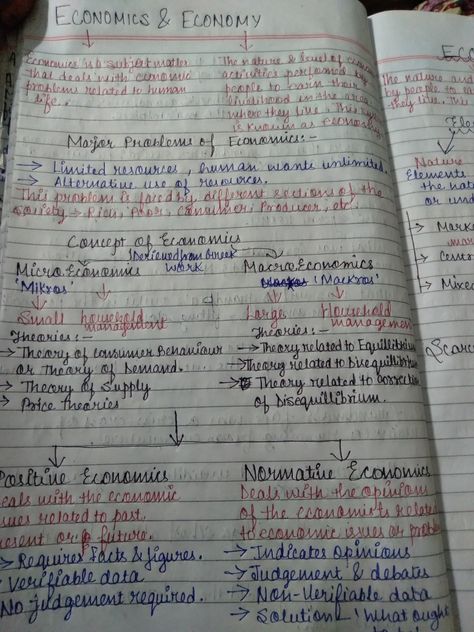 ECONOMICS & ECONOMY
Economics is a subject matter
that deals with economic
problems related to human
life.
The nature & level of
activities performed by
people to earn their
livelihood in the area
where they live. This
is known as economy.
Major Problems of Economics:-
→ Limited resources, human wants unlimited.
→ Alternative use of resources.
This problem is faced by different sections of the
society → Rich, Poor, Consumer, Producer, etc.
Concept of Economics
Derieved from Greek
work
MicroEconomics
'Mikros'
Small household
management
Theories:-
→ Theory of Consumer Behaviour
or Theory of Demand.
→ Theory of Supply
→ Price theories
MacroEconomics
'Mackros'
Large Household
management
Theories:-
→ Theory related to Equillibrium
→ Theory related to Disequillibrium
→ Theory related to correction
of Disequillibrium.
Positive Economics
eals with the economic
sues related to past
resent or future.
→ Requires Facts & figures.
Verifiable data
No judgement required.
Normative Economics
Deals with the opinions
of the economists related
to economic issues or
→ Indicates Opinions
→ Judgement & debates
→ Non-Verifiable data
→ Solution - 'What ought
The nature and
by people to ea
they live. This
Nature
Elements
the nat
or und
→ Marke
→ Mixed